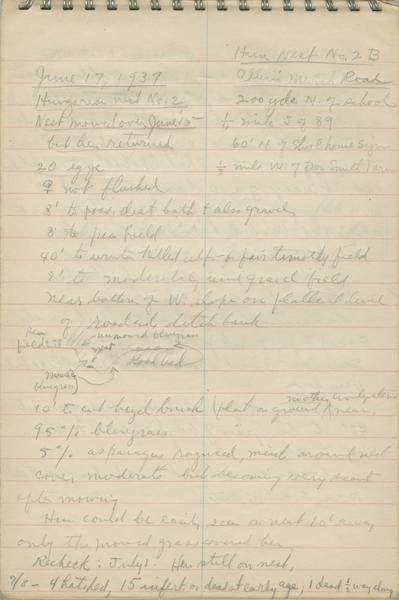 Hun Nest No. 2 B
June 17, 1939
Road
Hungarian nest No. 2
200 yds N. of school
Nest mowed over June 15
¼ mile S of 89
but hen returned
60' N of School house sign
20 eggs
½ mile W. of Don Smith Farm
♀ not flushed
8' to poss. dust bath & also gravel
8' to pea field
40' to winter killed alf & pair timothy field
8' to moderately used gravel field
near bottom of W. slope on flattened level
of roadside ditch bank
Pea field
unmowed bluegrass
nest
Road bed
Mowed bluegrass
10' to cut brush (flat on ground) near
95% bluegrass
5% asparagus ragweed, mint around nest
cover moderate but becoming very scant
after mowing
Hen could be easily seen on nest 10' away
only the mowed grass covered her
Recheck: July 1. Hen still on nest,
7/8 - 4 hatched, 15 infert or dead at early age; 1 dead ½ way along